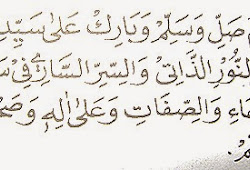 صَلِّ وَسَلِّمْ وَبَارِكْ عَلَى سَيِّدِ
النُّوْرِ الذَّاتِيْ وَالسِّرِّ السَّارِيْ فِيْ سَ
اءِ وَالصِّفَاتِ وَعَلَى اٰلِهٖ وَصَحْ